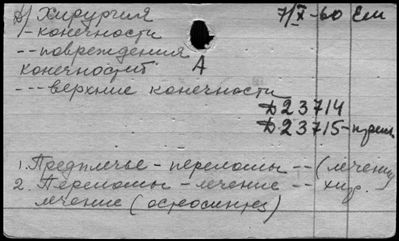 Д) Хирургия 7/X-60 Ем
- конечности
-- повреждения
конечностей А
--- верхние конечности
Д23714
Д23715-прил
1. Предплечье - переломы -- (лечение
2. Переломы - лечение -- хир.
лечение (остеосинтез)